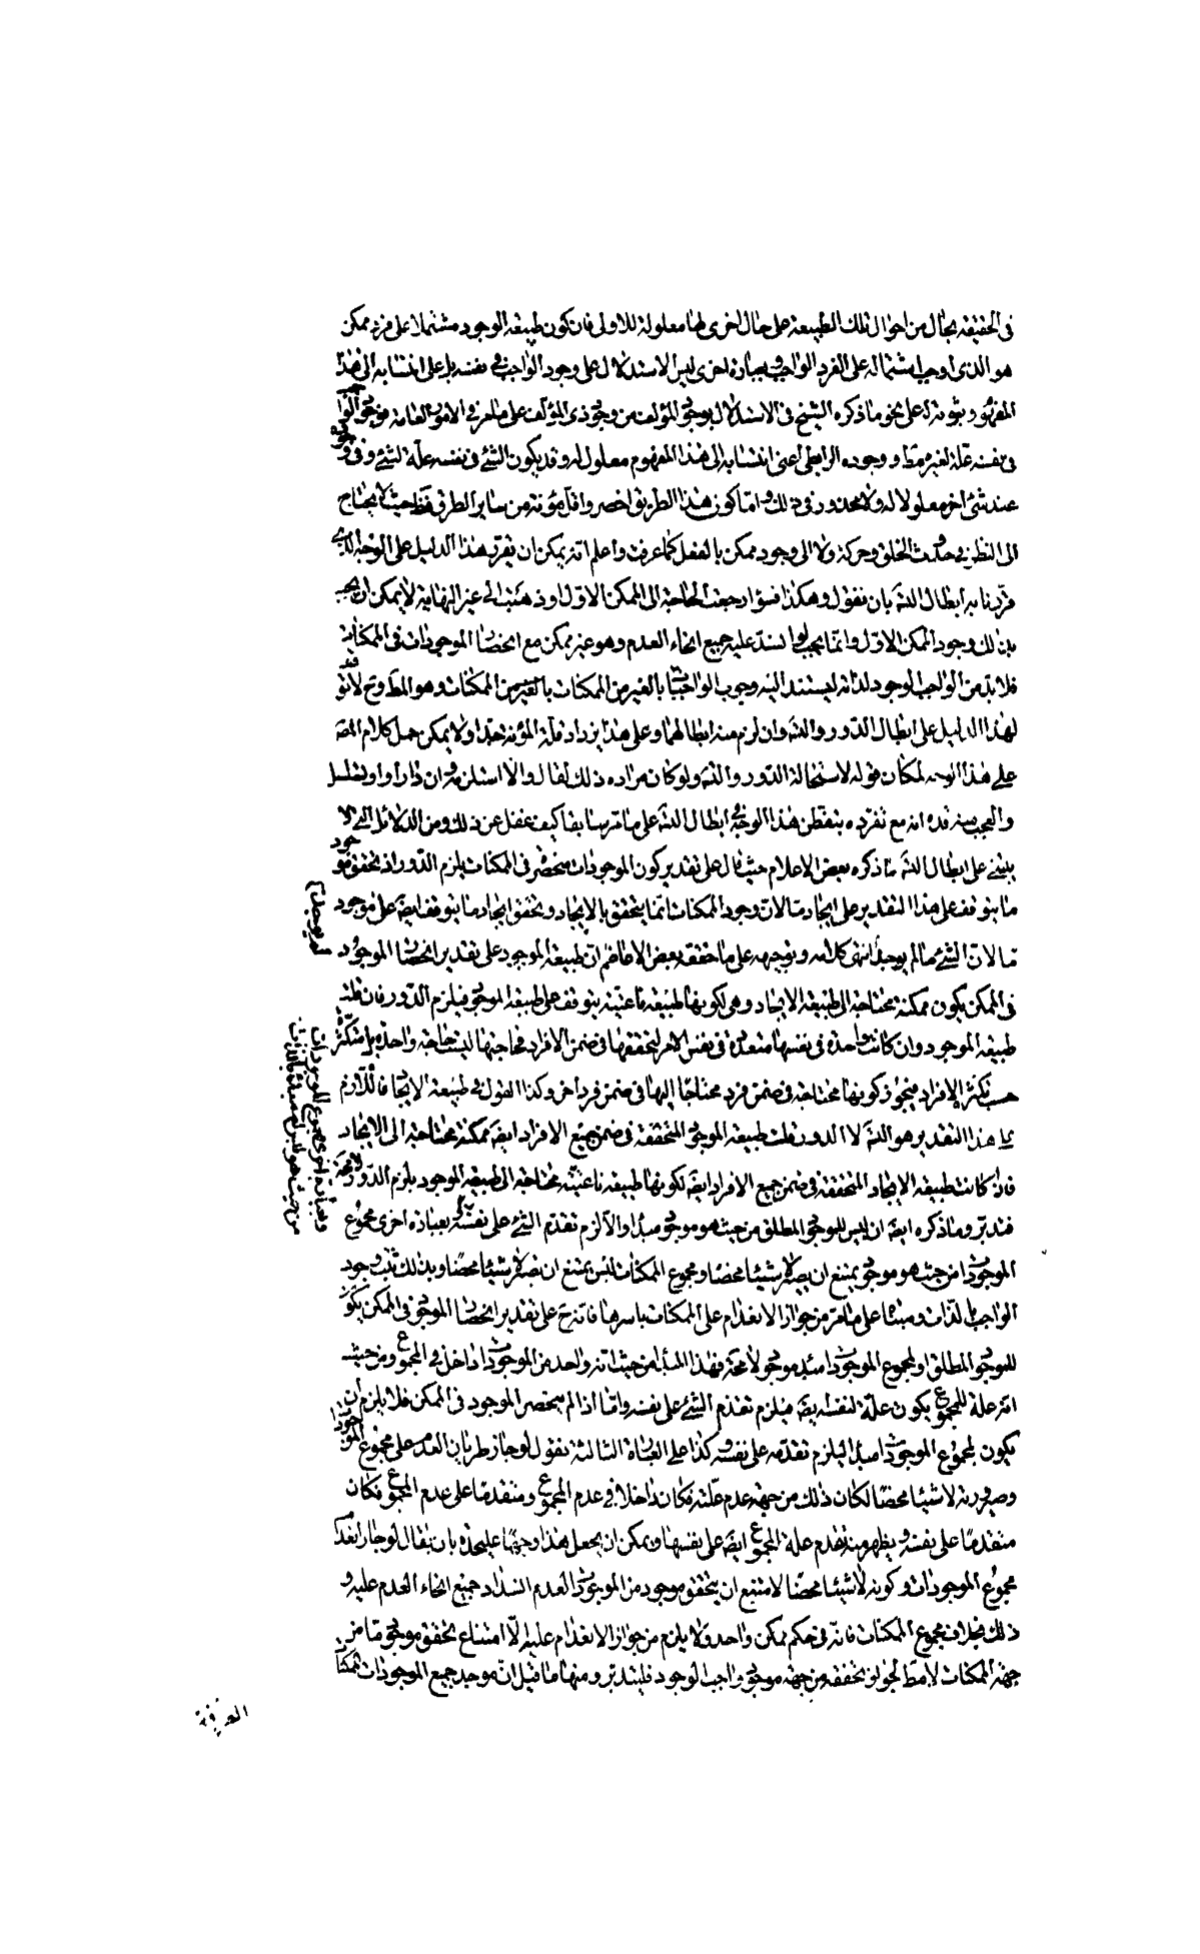 فى الحقيقة بحال من احوال تلك الطبيعة على حال اخرى لها معلولة للاولى فان كون طبيعة الوجود مشتملا على فرد ممكن
هو الذى اوجب اشتماله على الفرد الواجب وبعبارة اخرى ليس الاستدلال على وجود الواجب فى نفسه بل على انتسابه الى هذا
المفهوم وثبوته له على نحو ما ذكره الشيخ فى الاستدلال بوجود المؤلف من وجود ذى المؤلف على ما مر فى الامور العامة فوجود الواجب
فى نفسه علة لغيره مط ووجوده الرابطى اعنى انتسابه الى هذا المفهوم معلول له وقد يكون الشئ فى نفسه علة لشئ وفى وجوده
عند شئ اخر معلولا له ولا محذور فى ذلك واما كون هذا الطريق اخصر واقل مؤنة من ساير الطرق فظ حيث لا يحتاج
الى النظر فى حدوث الخلق وحركة ولا الى وجود ممكن بالفعل كما عرفت واعلم انه يمكن ان يقرر هذا الدليل على الوجه الذى
قررنا به ابطال التسه بان نقول وهكذا فسواء رجعت الحاجة الى الممكن الاول او ذهبت الى غير النهاية لا يمكن ان يجب
بذلك وجود الممكن الاول وانما يجب لو انسد عليه جميع انحاء العدم وهو غير ممكن مع انحصار الموجودات فى الممكنات
فلا بد من الواجب لوجود لذاته ليستند اليه وجوب الواجبات بالغير من الممكنات وهو المط وح لا توقف
لهذا الدليل على ابطال الدور والتسه وان لزم منه ابطالهما وعلى هذا يزداد قلة المؤنة جدا ولا يمكن حمل كلام المصه
على هذا الوجه لمكان قوله لاستحالة الدور والتسه ولو كان مراده ذلك لقال والا استلزمه وان دار او تسلسل
والعجب منه قده انه مع تفرده بتفطن هذا الوجه فى ابطال التسه على ما مر سابقا كيف غفل عن ذلك ومن الدلائل التى لا
يبتنى على ابطال التسه ما ذكره بعض الاعلام حيث قال على تقدير كون الموجودات منحصرة فى الممكنات يلزم الدور اذ تحقق موجود
ما يتوقف على هذا التقدير على ايجاد ما لان وجود الممكنات انما يتحقق بالايجاد وتحقق ايجاد ما يتوقف ايضه على موجود
ما لان الشئ ما لم يوجد لم يوجد انتهى كلامه وتوجيهه على ما حققه بعض الافاضم ان طبيعة الموجود على تقدير انحصار الموجود
فى الممكن يكون ممكنة محتاجة الى طبيعة الايجاد وهى لكونها طبيعة ناعتية يتوقف على طبيعة الموجود فيلزم الدور فان قلت
طبيعة الموجود وان كانت واحدة فى نفسها متعددة فى نفس الامر لتحققها فى ضمن الافراد فحاجتها ليست حاجة واحدة بل متكثرة
حسب تكثر الافراد فيجوز كونها محتاجة فى ضمن فرد محتاجا اليها فى ضمن فرد اخر وكذا القول فى طبيعة الايجاد فاللازم
على هذا التقدير هو التسه لا الدور قلت طبيعة الموجود المتحققة فى ضمن جميع الافراد ايضه ممكنة محتاجة الى الايجاد
فاذا كانت طبيعة الايجاد المتحققة فى ضمن جميع الافراد ايضه لكونها طبيعة ناعتية محتاجة الى طبيعة الموجود يلزم الدور لا محة
فتدبر وما ذكره ايضه ان ليس للموجود المطلق من حيث هو موجود مبدا والا لزم تقدم الشئ على نفسه وبعبارة اخرى مجموع
الموجودات من حيث هو موجود يمتنع ان يصير لا شيئا محضا ومجموع الممكنات ليس يمتنع ان يصير لا شيئا محضا وبذلك ثبت وجود
الواجب بالذات ومبناها على ما مر من جواز الانعدام على الممكنات باسرها فانه ح على تقدير انحصار الموجود فى الممكن يكون
للموجود المطلق او لمجموع الموجودات مبدا موجود لا محة فهذا المبدا من حيث انه واحد من الموجودات داخل فى المجموع ومن حيث
انه علة للمجموع يكون علة لنفسه ايضه فيلزم تقدم الشئ على نفسه واما اذا لم ينحصر الموجود فى الممكن فلا يلزم ان
يكون لمجموع الموجودات مبدا ليلزم تقدمه على نفسه وكذا على العبارة الثالثة نقول لو جاز طريان العدم على مجموع الموجودات
وصيرورته لا شيئا محضا لكان ذلك من جهة عدم علته فكان داخلا فى عدم المجموع ومتقدما على عدم المجموع فكان
متقدما على نفسه ويظهر منه تقدم علة المجموع ايضه على نفسها ويمكن ان يجعل هذا وجها عليحده بان يقال لو جاز انعدام
مجموع الموجودات وكونه لا شيئا محضا لامتنع ان يتحقق موجود من الموجودات لعدم انسداد جميع انحاء العدم عليه و
ذلك بخلاف مجموع الممكنات فانه فى حكم ممكن واحد ولا يلزم من جواز الانعدام عليه الا امتناع تحقق موجود ما من
جهة الممكنات لا مط لجواز تحققه من جهة موجود واجب الوجود فليتدبر ومنها ما قيل ان موجد جميع الموجودات الممكنة
لم يوجد
وبعبارة اخرى مجموع الموجودات
من حيث هو ليس له مبدا بالذات
الصرفة